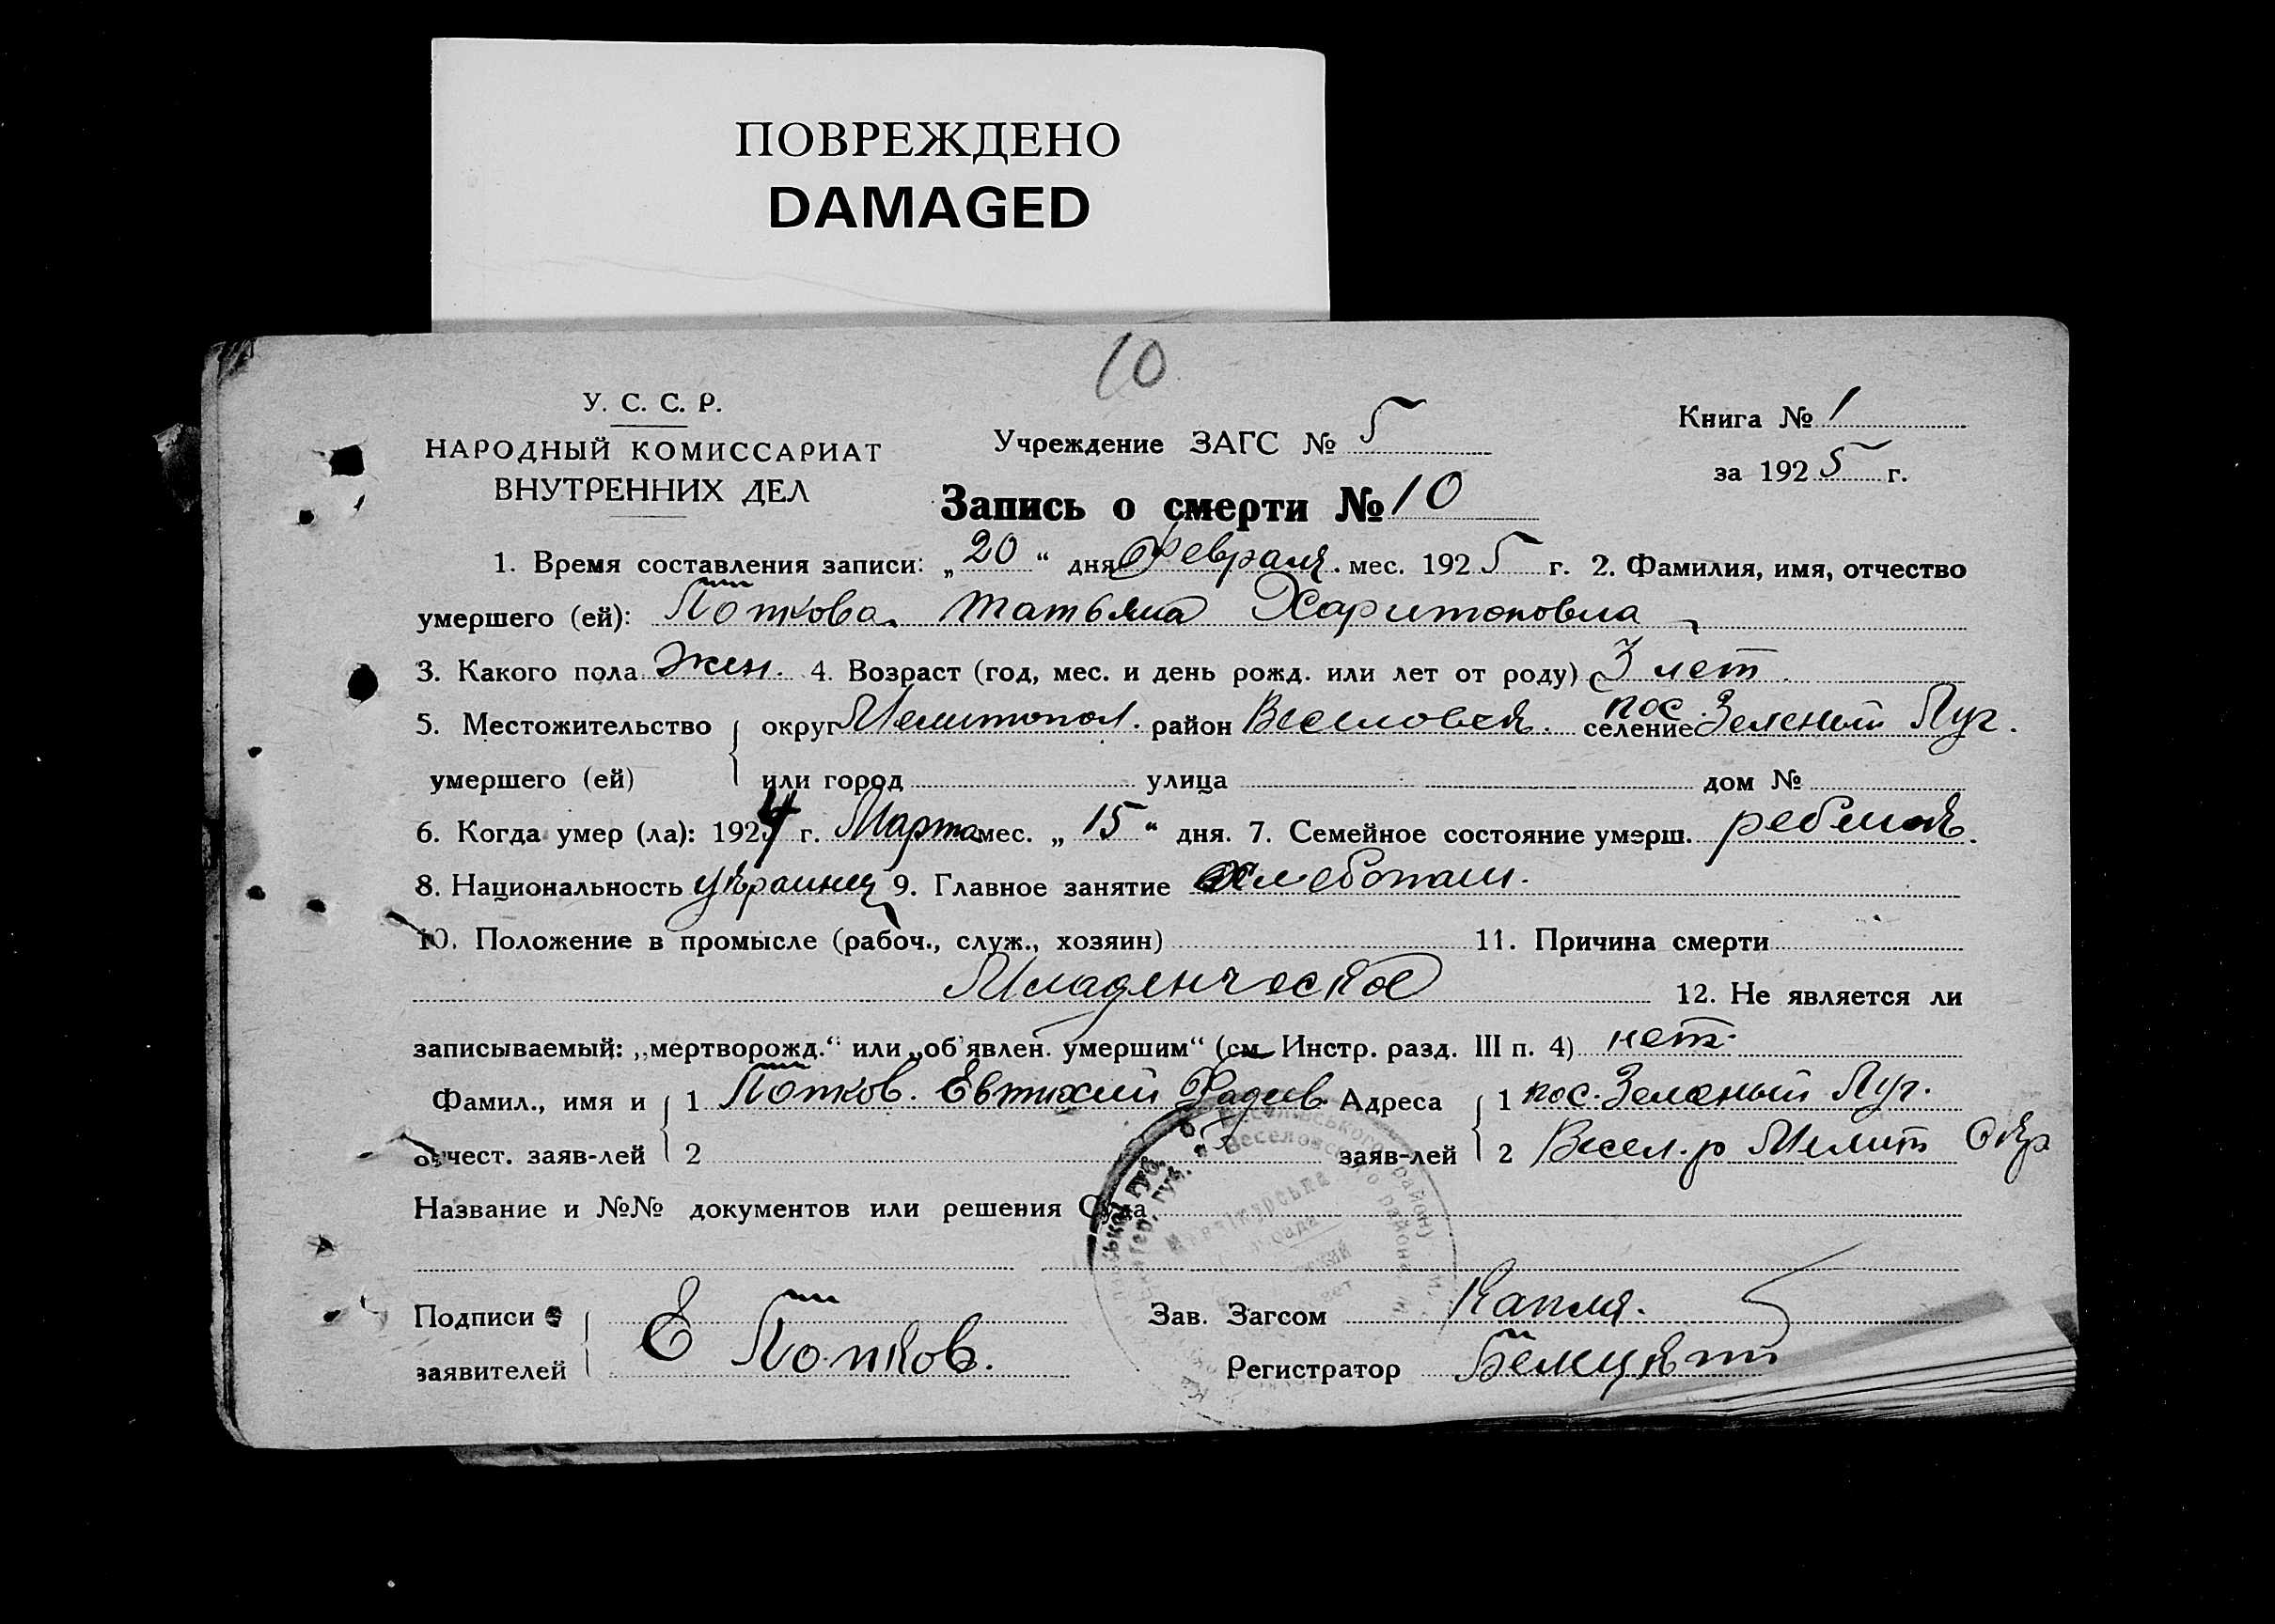 ПОВРЕЖДЕНО
DAMAGED
10
У. С. С. Р.
НАРОДНЫЙ КОМИССАРИАТ
ВНУТРЕННИХ ДЕЛ
Учреждение ЗАГС № 5
Книга № 1
за 1925 г.
Запись о смерти № 10
1. Время составления записи: „20“ дня Февраля мес. 1925 г. 2. Фамилия, имя, отчество
умершего (ей): Попкова Татьяна Харитоновна
3. Какого пола Жен. 4. Возраст (год, мес. и день рожд. или лет от роду) 3 лет
5. Местожительство округ Мелитопол. район Веселовск. селение пос. Зеленый Луг.
умершего (ей) или город улица дом №
6. Когда умер (ла): 1924 г. Марта мес. „15“ дня. 7. Семейное состояние умерш. ребенок.
8. Национальность украинец 9. Главное занятие хлебопаш.
10. Положение в промысле (рабоч., служ., хозяин) 11. Причина смерти
Младенческое 12. Не является ли
записываемый: „мертворожд.“ или „об'явлен. умершим“ (см. Инстр. разд. III п. 4) нет.
Фамил., имя и 1 Попков. Евтихий Фадеев. Адреса 1 пос. Зеленый Луг.
отчест. заяв-лей 2 заяв-лей 2 Весел. р Мелит Окр
Название и №№ документов или решения Суда
Подписи Зав. Загсом Капля.
заявителей Е Попков. Регистратор